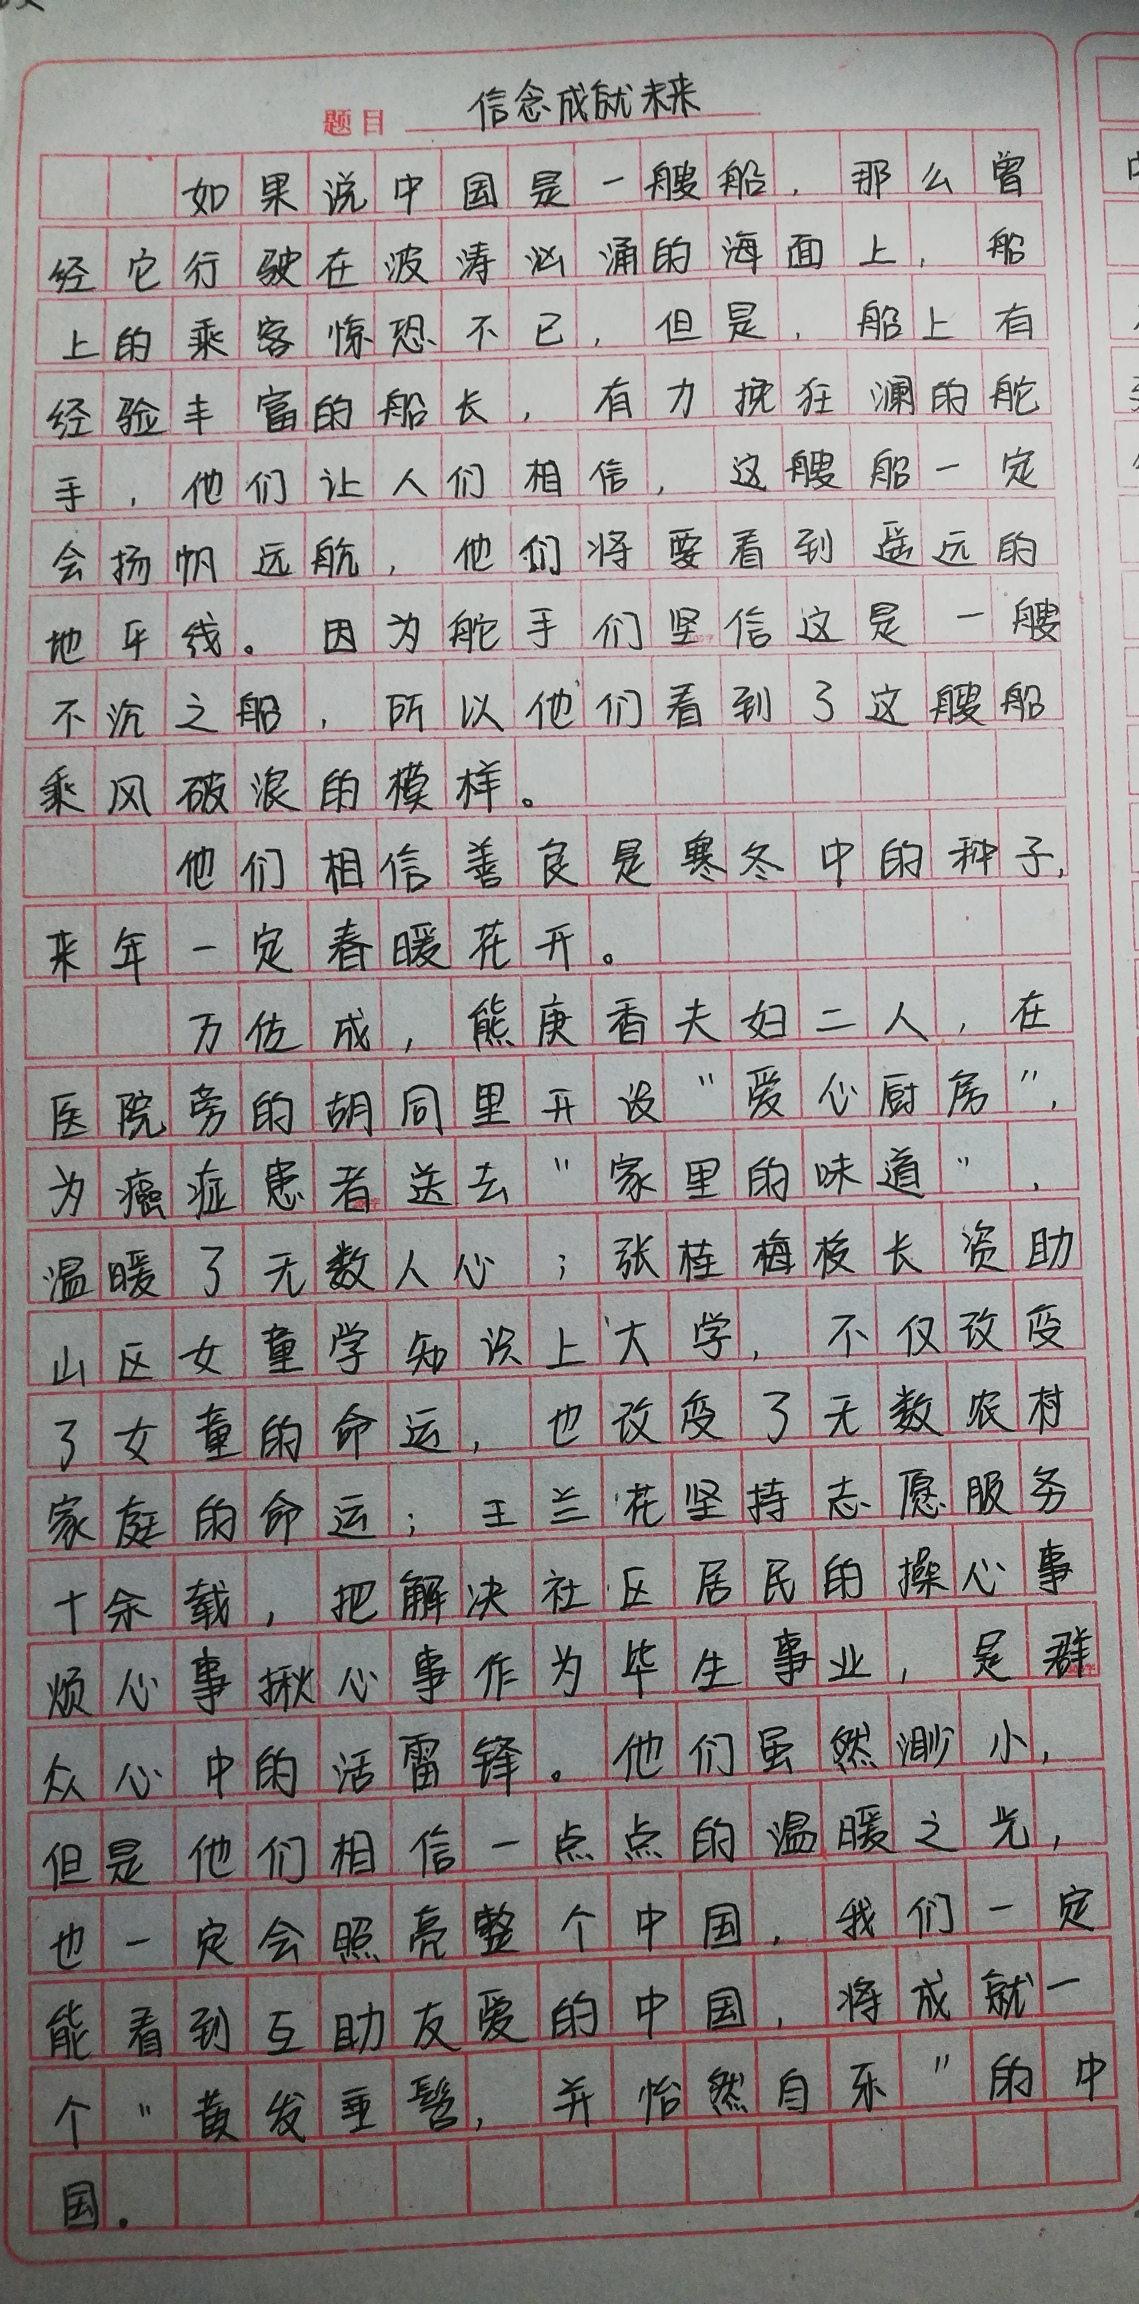 题目 信念成就未来
如果说中国是一艘船，那么曾
经它行驶在波涛汹涌的海面上，船
上的乘客惊恐不已，但是，船上有
经验丰富的船长，有力挽狂澜的舵
手，他们让人们相信，这艘船一定
会扬帆远航，他们将要看到遥远的
地平线。因为舵手们坚信这是一艘
不沉之船，所以他们看到了这艘船
乘风破浪的模样。
他们相信善良是寒冬中的种子，
来年一定春暖花开。
万佐成，熊庚香夫妇二人，在
医院旁的胡同里开设"爱心厨房"，
为癌症患者送去"家里的味道"，
温暖了无数人心；张桂梅校长资助
山区女童学知识上大学，不仅改变
了女童的命运，也改变了无数农村
家庭的命运；王兰花坚持志愿服务
十余载，把解决社区居民的操心事
烦心事揪心事作为毕生事业，是群
众心中的活雷锋。他们虽然渺小，
但是他们相信一点点的温暖之光，
也一定会照亮整个中国，我们一定
能看到互助友爱的中国，将成就一
个"黄发垂髫，并怡然自乐"的中
国。